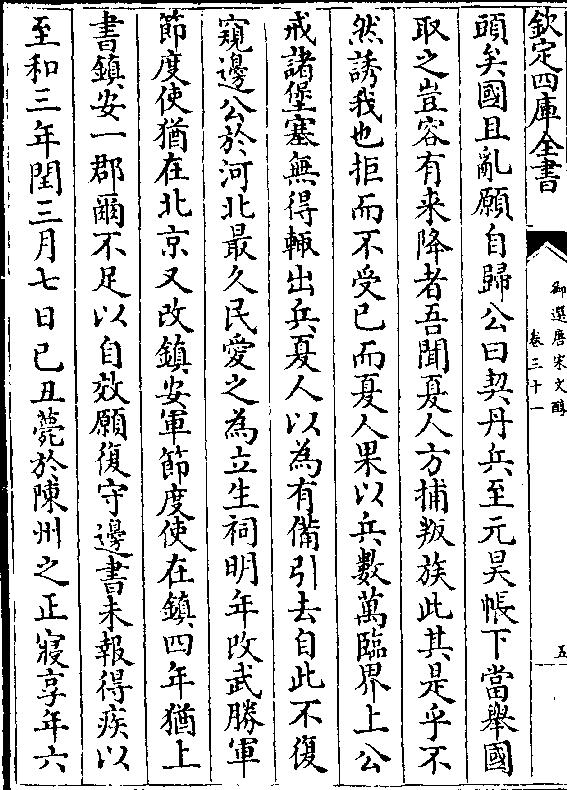 欽定四庫全書
御選唐宋文醇
卷三十一
五
頭矣國且亂願自歸公曰契丹兵至元昊帳下當舉國
取之豈容有来降者吾聞夏人方捕叛族此其是乎不
然誘我也拒而不受已而夏人果以兵數萬臨界上公
戒諸堡塞無得輒出兵夏人以為有備引去自此不復
窺邊公於河北最久民愛之為立生祠明年改武勝軍
節度使猶在北京又改鎮安軍節度使在鎮四年猶上
書鎮安一郡爾不足以自效願復守邊書未報得疾以
至和三年閏三月七日己丑薨於陳州之正寢享年六